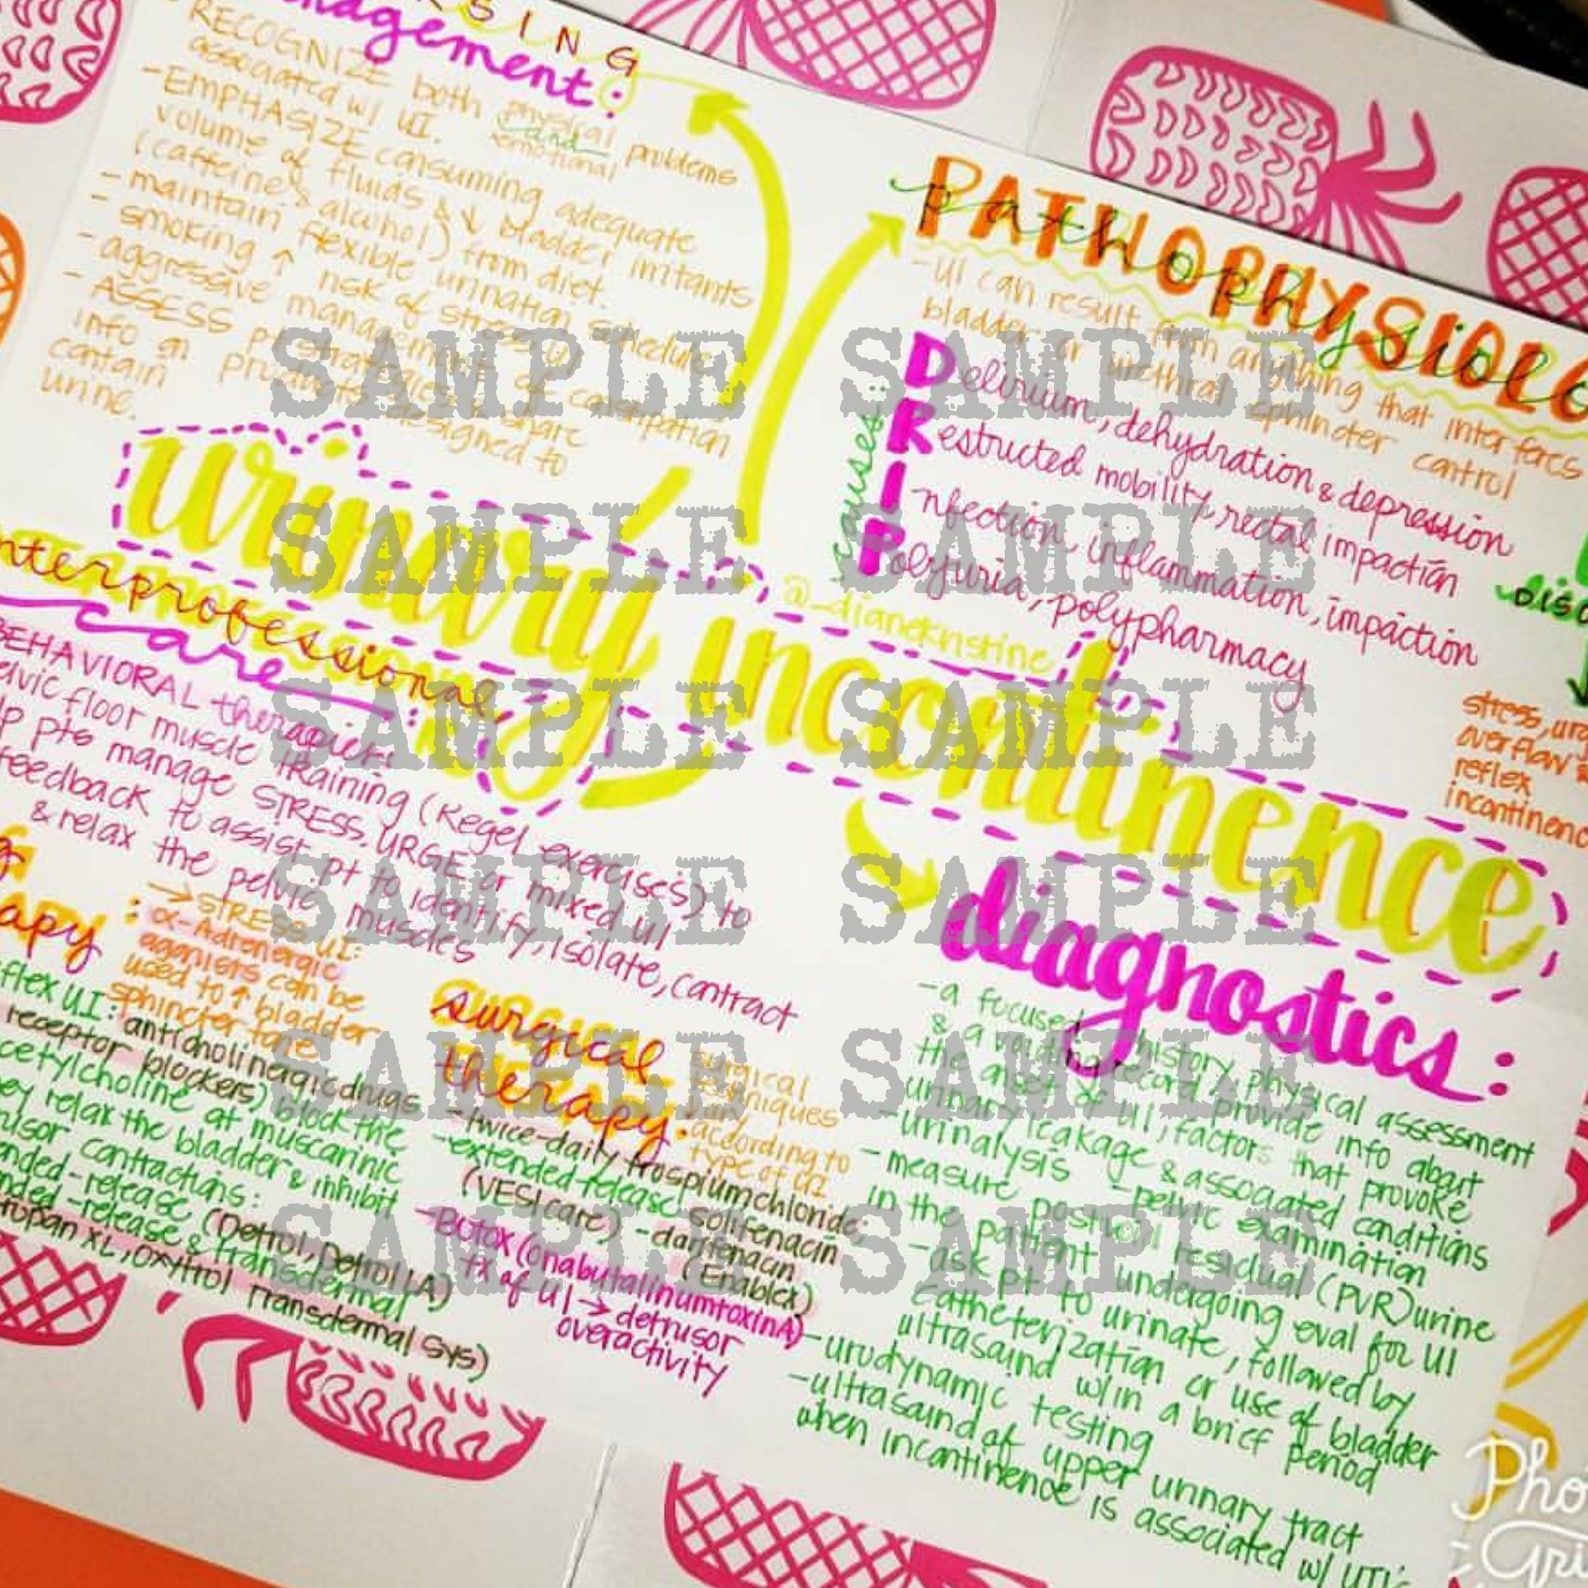 RSING
nagement:
- RECOGNIZE both physical and emotional problems
associated w/ UI.
- EMPHASIZE consuming adequate
volume of fluids & ↓ bladder irritants
(caffeine & alcohol) from diet.
- maintain flexible urination schedule
- smoking ↑ risk of stress UI
- aggressive management of constipation
- ASSESS pt strategies & share
info on products designed to
contain
urine.
PATHOPHYSIOLO
pathophysiolo
- UI can result from anything that interferes
bladder or urethral sphincter control
causes:
Delirium, dehydration & depression
Restructed mobility, rectal impaction
Infection, inflammation, impaction
Polyuria, polypharmacy
urinary incontinence
@_dianekristine
DISO
stress, urg
overflow &
reflex
incontinenc
nterprofessional
care:
BEHAVIORAL therapies:
elvic floor muscle training (Kegel exercises) to
lp pts manage STRESS, URGE or mixed UI
feedback to assist pt to identify, isolate, contract
& relax the pelvic muscles
apy:
→ STRESS UI:
α-Adrenergic
agonists can be
used to ↑ bladder
sphincter tone
flex UI: anticholinergic drugs
receptor blockers) block the
cetylcholine at muscarinic
ey relax the bladder & inhibit
rusor contractions:
ended-release (Detrol, Detrol LA)
nded-release & transdermal
tropan XL, oxytrol Transdermal Sys)
surgical
therapy:
surgical
techniques
vary
according to
type of UI
- twice-daily trospium chloride;
- extended-release solifenacin
(VESIcare) - darifenacin
(Enablex)
- BOTOX (onabutalinumtoxinA)
tx of UI → detrusor
overactivity
diagnostics:
- a focused history, physical assessment
& a voiding record provide info about
the onset of UI, factors that provoke
urinary leakage & associated conditions
- urinalysis - pelvic examination
- measure postvoid residual (PVR) urine
in the patient undergoing eval for UI
- ask pt to urinate, followed by
catheterization or use of bladder
ultrasound w/in a brief period
- urodynamic testing
- ultrasound of upper urinary tract
when incontinence is associated w/ UTIs
SAMPLE SAMPLE
SAMPLE SAMPLE
SAMPLE SAMPLE
SAMPLE SAMPLE
SAMPLE SAMPLE
SAMPLE SAMPLE
Pho
Gri